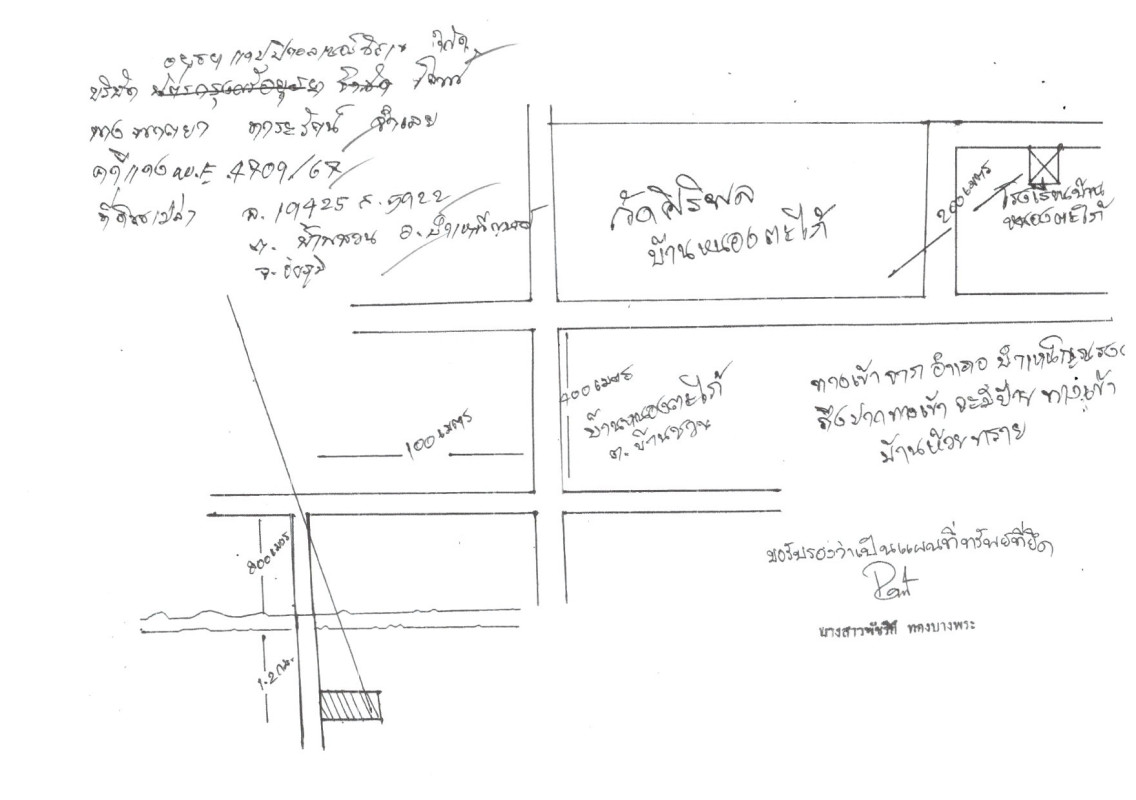 อยุธยา แคปปิตอล เซอร์วิสเซส จำกัด
บริษัท โจทก์
นาง จำเลย
คดีแดง ผบ.E 4909/67
ที่ดินเปล่า ฉ. 19425 ร. 5922
ต. บ้านชวน อ. บำเหน็จณรงค์
จ. ชัยภูมิ
วัดศิริพล
บ้านหนองตะไก้
200 เมตร
โรงเรียนบ้าน
หนองตะไก้
400 เมตร
บ้านหนองตะไก้
ต. บ้านชวน
ทางเข้าจาก อำเภอ บำเหน็จณรงค์
ถึงปากทางเข้า จะมีป้าย ทางเข้า
บ้านห้วยทราย
100 เมตร
800 เมตร
1.2 กม.
ขอรับรองว่าเป็นแผนที่ทรัพย์ที่ยึด
นางสาวพัชรี ทองบางพระ